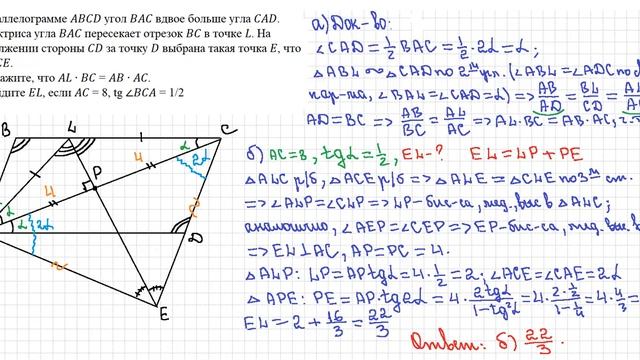 араллелограмме ABCD угол BAC вдвое больше угла CAD.
ектриса угла BAC пересекает отрезок BC в точке L. На
олжении стороны CD за точку D выбрана такая точка E, что
CE.
кажите, что AL · BC = AB · AC.
йдите EL, если AC = 8, tg ∠BCA = 1/2
B L C
P
D
E
α 2α
4
4
α
α 2α
а) Док-во:
∠CAD = 1/2 BAC = 1/2 · 2α = α;
△ABL ∼ △CAD по 2м угл. (∠ABL = ∠ADC по св
пар-ма, ∠BAL = ∠CAD = α) => AB/AD = BL/CD = AL/A
AD = BC => AB/BC = AL/AC => AL·BC = AB·AC, ч.т.
б) AC = 8, tgα = 1/2, EL - ? EL = LP + PE
△ALC р/б, △ACE р/б => △ALE = △CLE по 3м ст.
=> ∠ALP = ∠CLP => LP - бис-са, мед., выс в △ALC;
аналогично, ∠AEP = ∠CEP => EP - бис-са, мед. выс в
=> EL ⊥ AC, AP = PC = 4.
△ALP: LP = AP tgα = 4 · 1/2 = 2; ∠ACE = ∠CAE = 2α
△APE: PE = AP · tg2α = 4 · 2tgα/1-tg²α = 4 · 2·1/2/1-1/4 = 4 · 4/3 =
EL = 2 + 16/3 = 22/3
Ответ: б) 22/3.